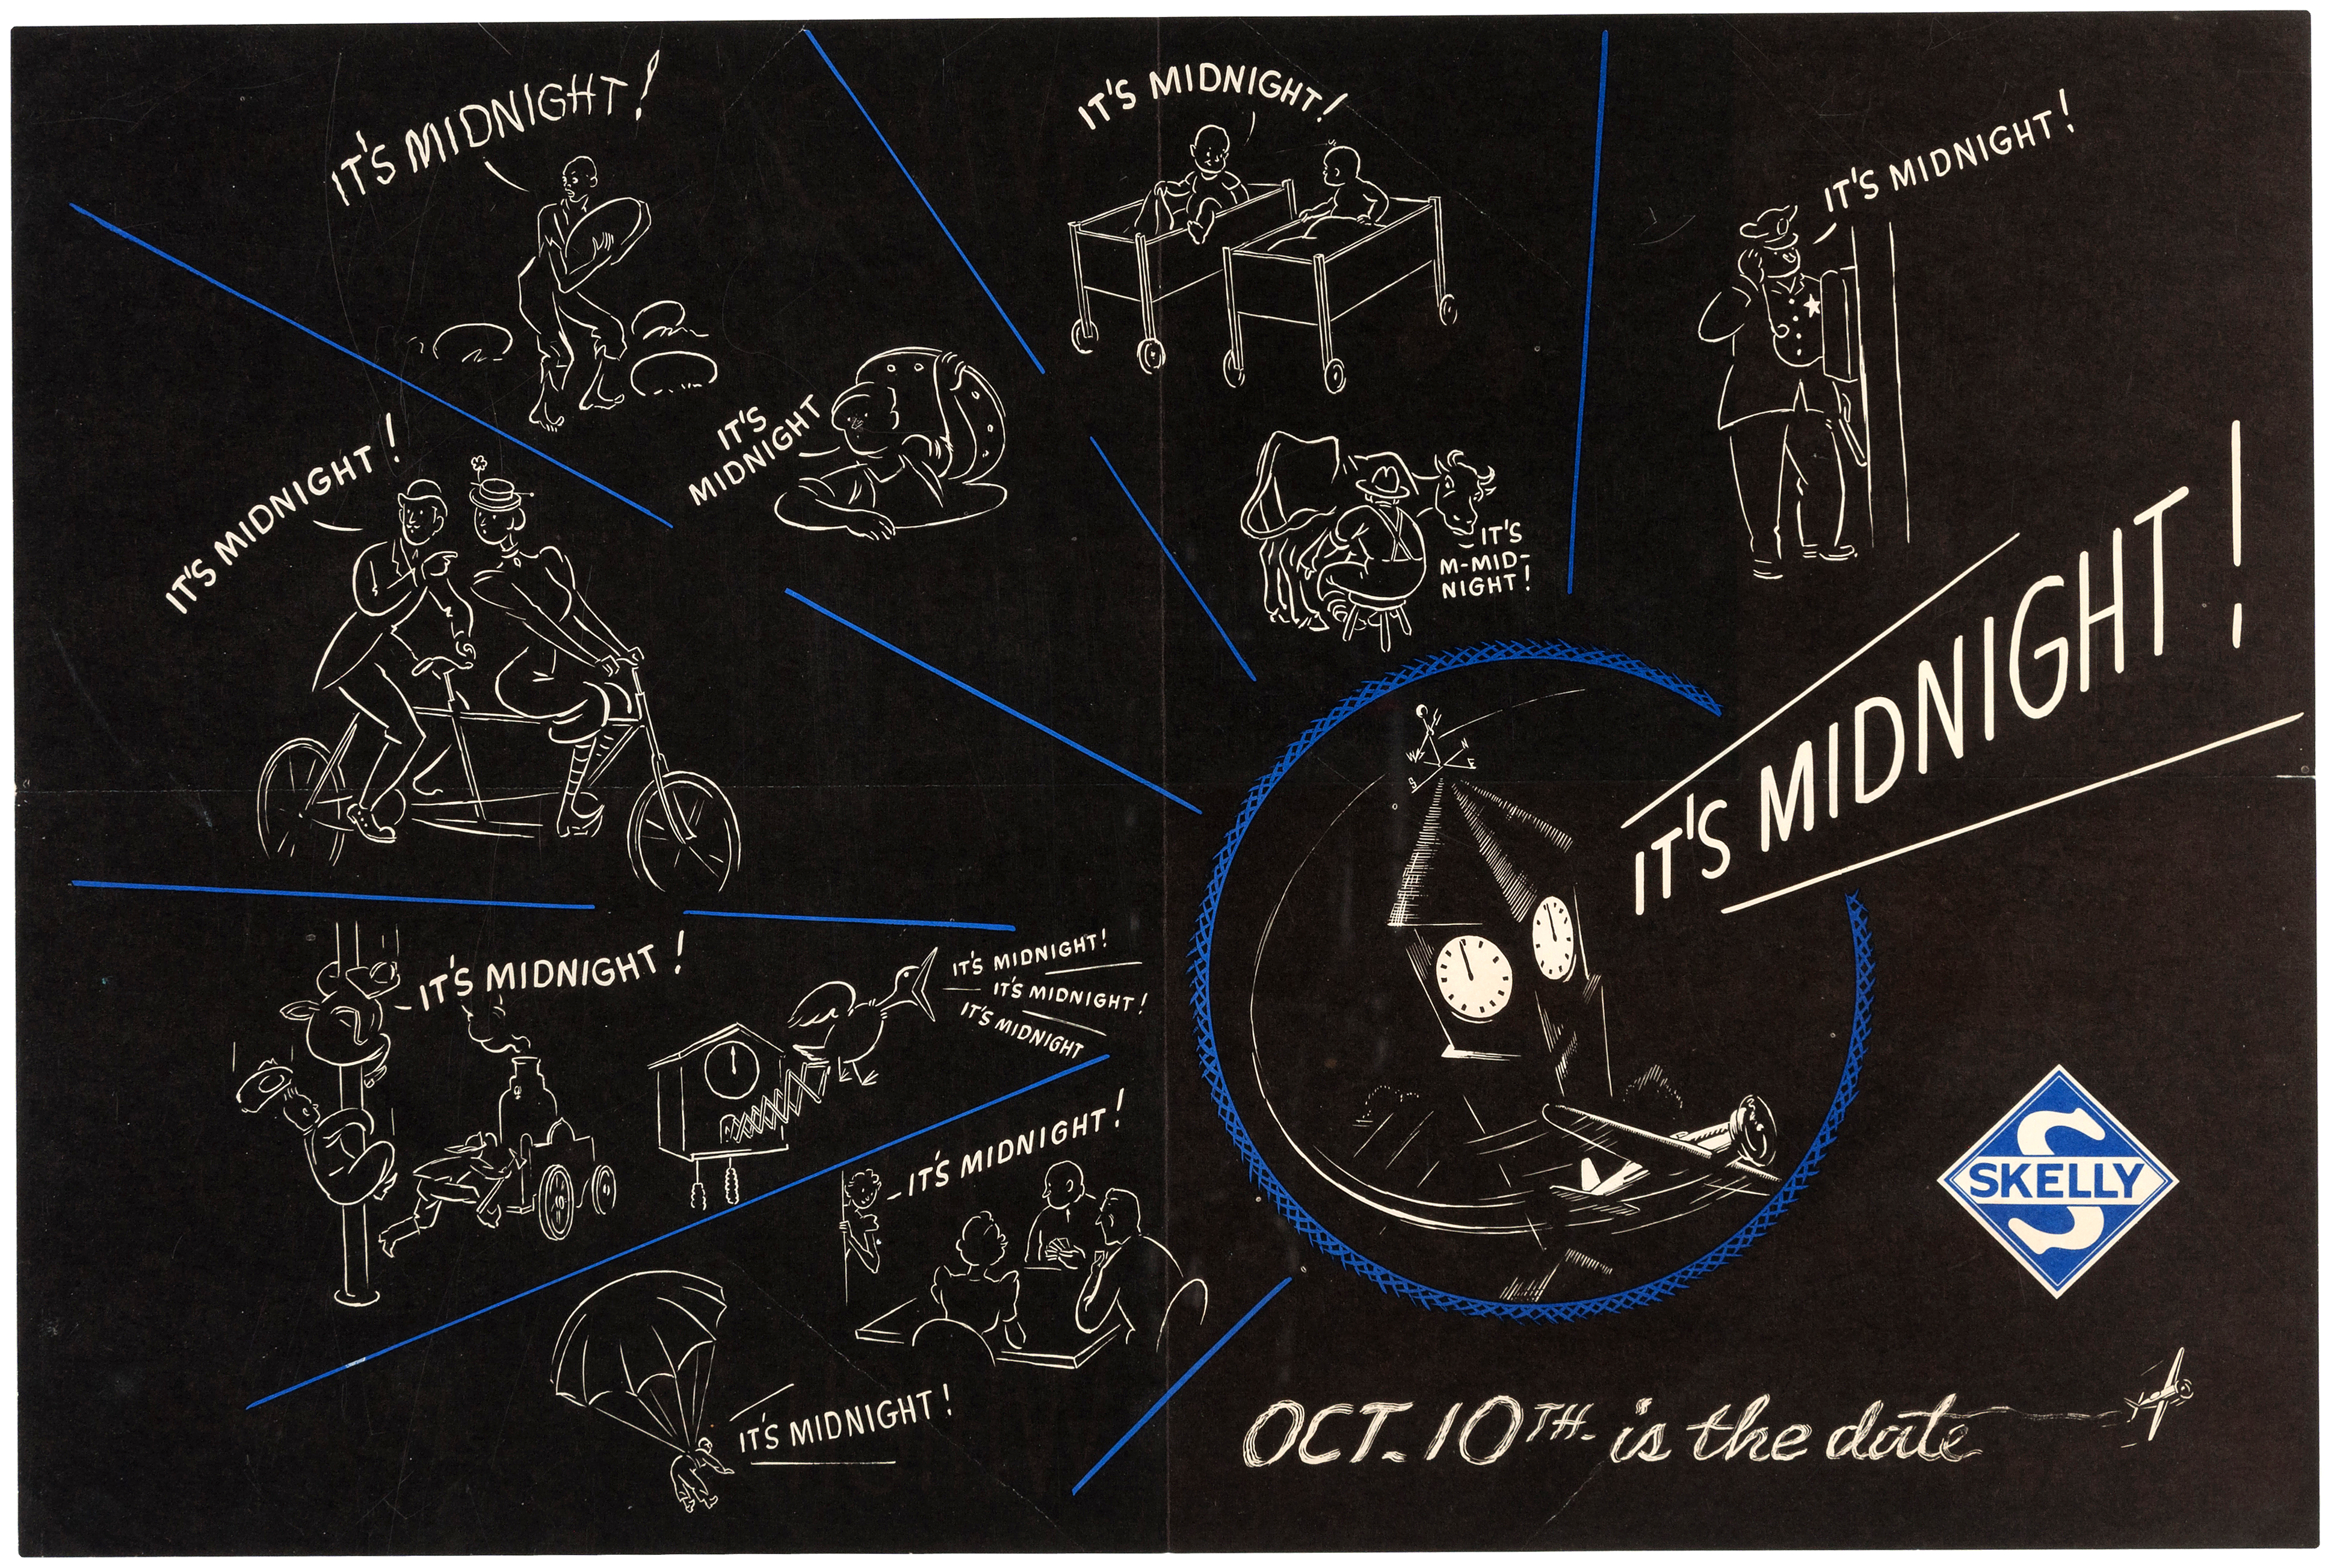 IT'S MIDNIGHT!
IT'S MIDNIGHT!
IT'S MIDNIGHT!
IT'S MIDNIGHT!
IT'S
MIDNIGHT
IT'S
M-MID-
NIGHT!
IT'S MIDNIGHT!
IT'S MIDNIGHT!
N
W
E
S
IT'S MIDNIGHT!
IT'S MIDNIGHT!
IT'S MIDNIGHT!
IT'S MIDNIGHT
IT'S MIDNIGHT!
IT'S MIDNIGHT!
S
SKELLY
OCT. 10TH. is the date